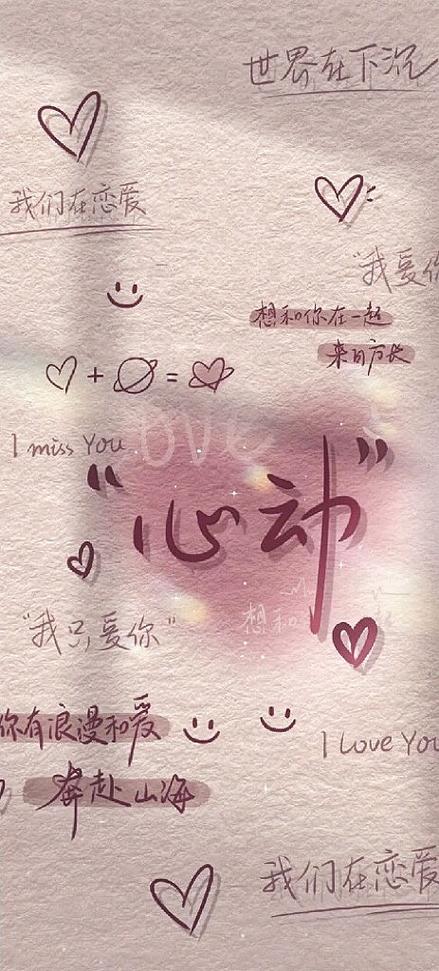 世界在下沉
我们在恋爱
"我爱你
想和你在一起
来日方长
+ =
I miss You
ove
"心动"
想和
"我只爱你"
你有浪漫和爱
I Love You
奔赴山海
我们在恋爱